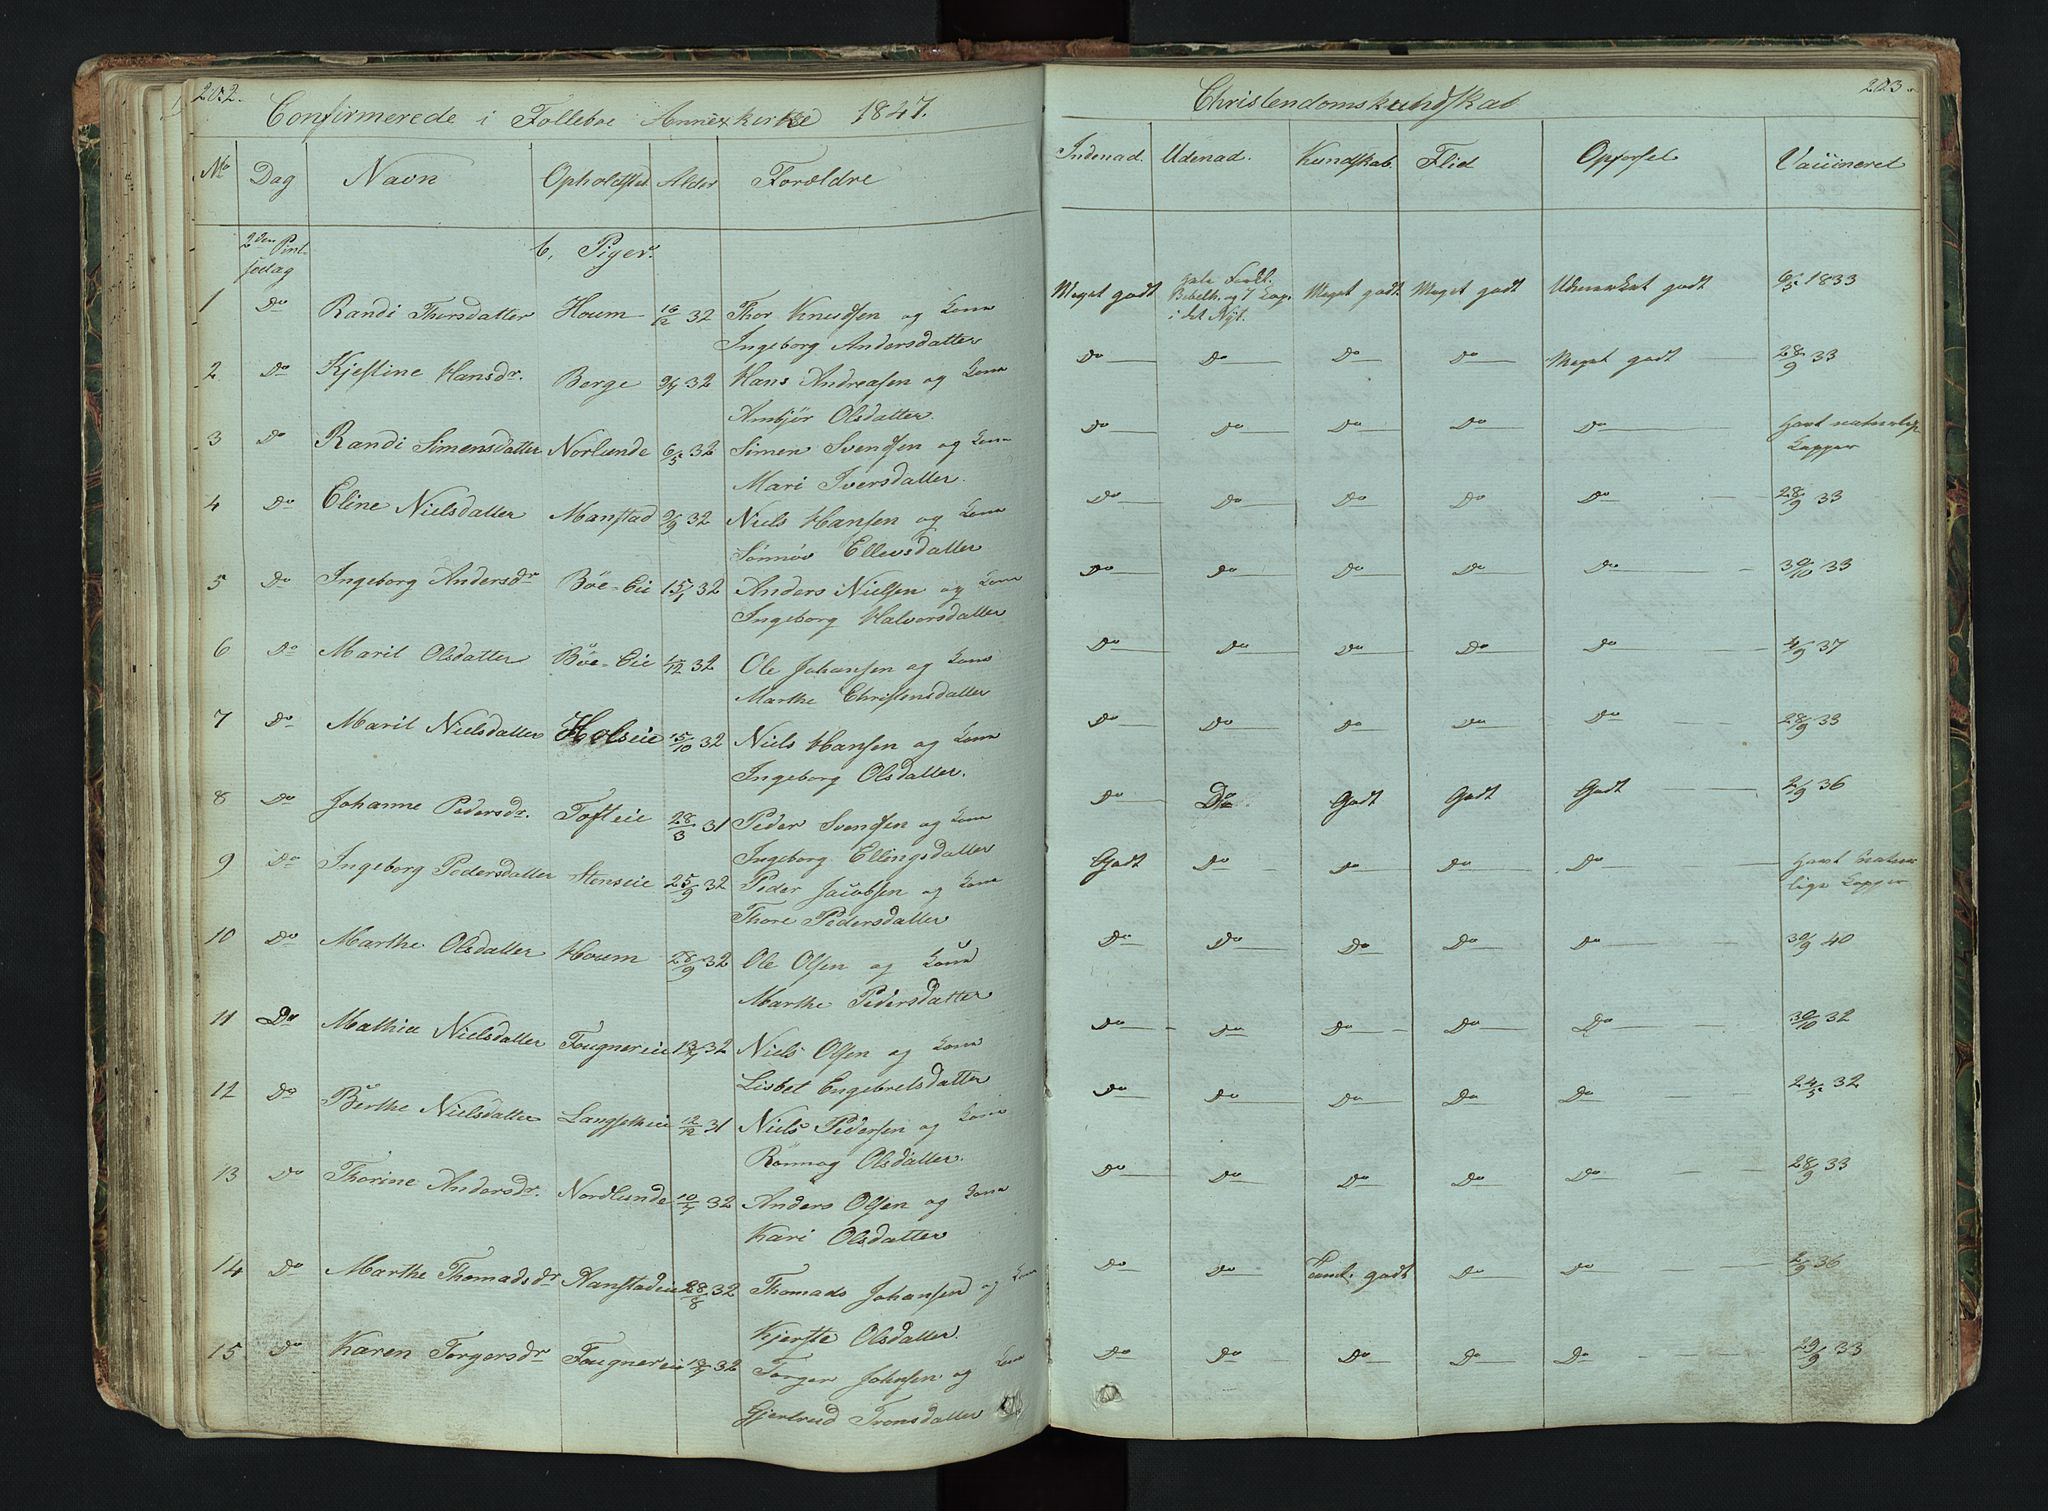 202.
Confirmerede i Folleboe Annexkirke 1847.
No Dag Navn Opholdsted Alder Forældre
2den Pintsedag
b, Piger.
1 Do Randi Thorsdatter Houm 16/12 32 Thor Knudsen og Kone
Ingeborg Andersdatter
2 Do Kjestine Hansdr. Berge 32 Hans Andreasen og Kone
Anbjør Olsdatter.
3 Do Randi Simensdatter Norlunde 6/5 32 Simen Svendsen og Kone
Mari Iversdatter.
4 Do Eline Nielsdatter 32 Niels Hansen og Kone
Sønnøv Ellevsdatter
5 Do Ingeborg Andersdr Böe-Eie 15/1 32 Anders Nielsen og Kone
Ingeborg Halvorsdatter
6 Do Marit Olsdatter Böe-Eie 32 Ole Johansen og Kone
Marthe Christensdatter
7 Do Marit Nielsdatter Holseie 15/10 32 Niels Hansen og Kone
Ingeborg Olsdatter.
8 Do Johanne Pedersdr. Tofteie 28/3 31 Peder Svendsen og Kone
Ingeborg Ellingsdatter
9 Do Ingeborg Pedersdatter Stenseie 25/9 32 Peder Jacobsen og Kone
Thore Pedersdatter
10 Do Marthe Olsdatter Houm 28/9 32 Ole Olsen og Kone
Marthe Pedersdatter
11 Do Mathia Nielsdatter Fougnereie 32 Niels Olsen og Kone
Lisbet Engebretsdatter
12 Do Berthe Nielsdatter Langsetheie 12/12 31 Niels Pedersen og Kone
Rönnog Olsdatter.
13 Do Thorine Andersdr. Nordlunde 32 Anders Olsen og Kone
Kari Olsdatter
14 Do Marthe Thomadsdr Aanstadeie 28/8 32 Thomads Johansen og Kone
Kjerste Olsdatter.
15 Do Karen Torgersdr Fougnereie 32 Torger Johnsen og Kone
Gjertrud Tronsdatter
203.
Christendomskundskab
Indenad. Udenad. Kundskab. Flid Opførsel Vaccineret
Meget godt hele Forkl. Meget godt Meget godt Udmærket godt 6/5 1833
Bibelh. og 7 Cap.
i det Nyt.
Do Do Do Do Meget godt 28/9 33
Do Do Do Do Do havt naturlige
Kopper
Do Do Do Do Do 28/9 33
Do Do Do Do Do 30/10 33
Do Do Do Do Do 37
Do Do Do Do Do 28/9 33
Do Do Godt Godt Godt 2/9 36
Godt Do Do Do Do havt naturlige
Kopper
Do Do Do Do Do 30/9 40
Do Do Do Do Do 30/10 32
Do Do Do Do Do 24/5 32
Do Do Do Do Do 28/9 33
Do Do Teml. godt Do Do 2/9 36
Do Do Do Do Do 29/9 33